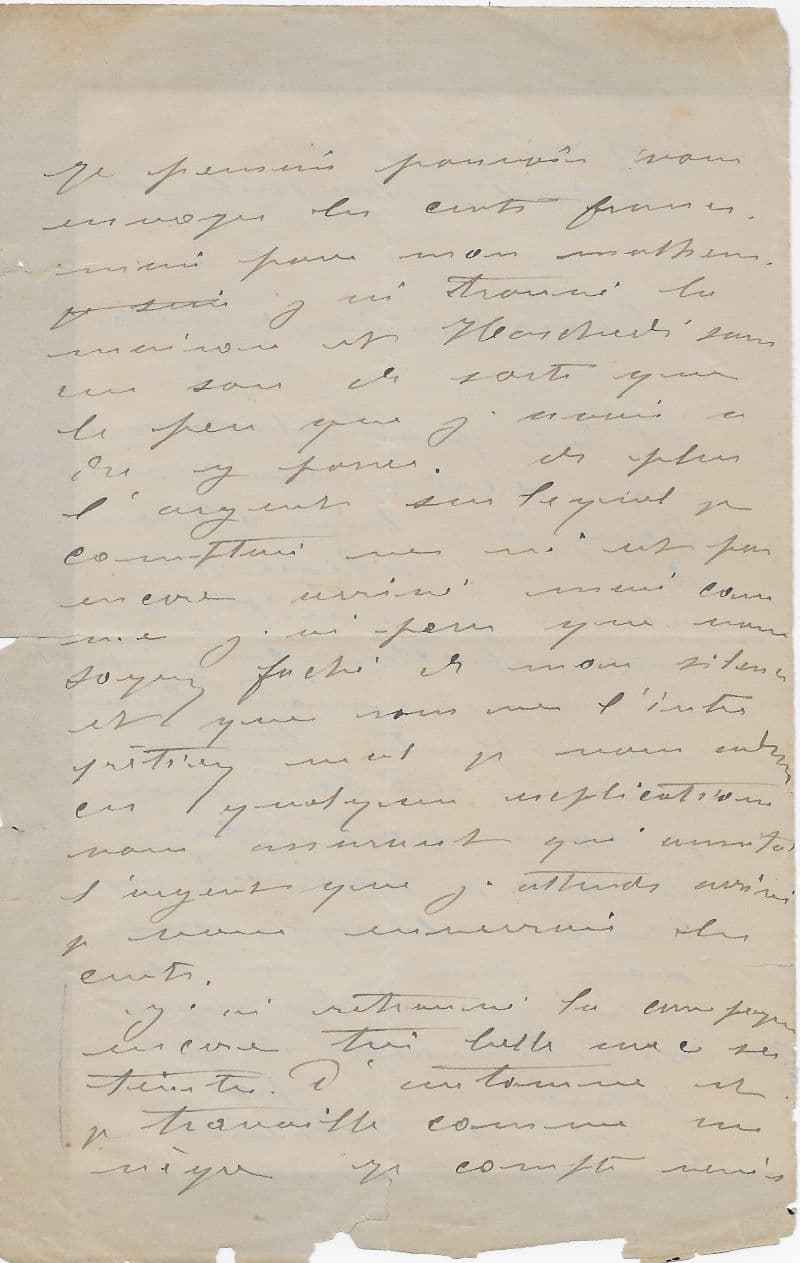 Je pensais pouvoir vous
envoyer les cents francs.
mais pour mon malheur.
je suis j ai trouvé la
maison et Hoschedé sans
un sou de sorte que
le peu que j avais a
du y passer. de plus
l'argent sur lequel je
comptai ne m'est pas
encore arrivé mais com
me j ai peur que vous
soyez faché de mon silence
et que vous ne l'inter
prétiez mal je vous
ces quelques explications
vous assurant qu'aussitot
l'argent que j'attends arrivé
je vous enverrais les
cents.
J'ai retrouvé la campagne
encore très belle avec ses
teintes. D'automne et
je travaille comme un
nègre je compte venir